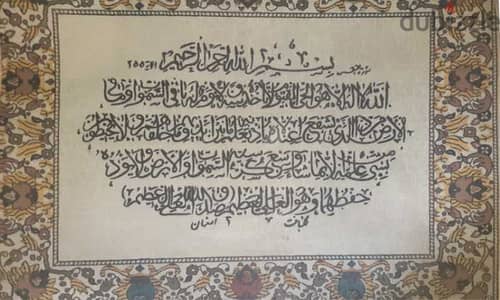 بسم الله الرحمن الرحيم
الله لا اله الا هو الحي القيوم لا تأخذه سنة ولا نوم له ما في السموات وما في
الارض من ذا الذي يشفع عنده الا باذنه يعلم ما بين ايديهم وما خلفهم ولا يحيطون
بشيء من علمه الا بما شاء وسع كرسيه السموات والارض ولا يؤده
حفظهما وهو العلي العظيم صدق الله العلي العظيم